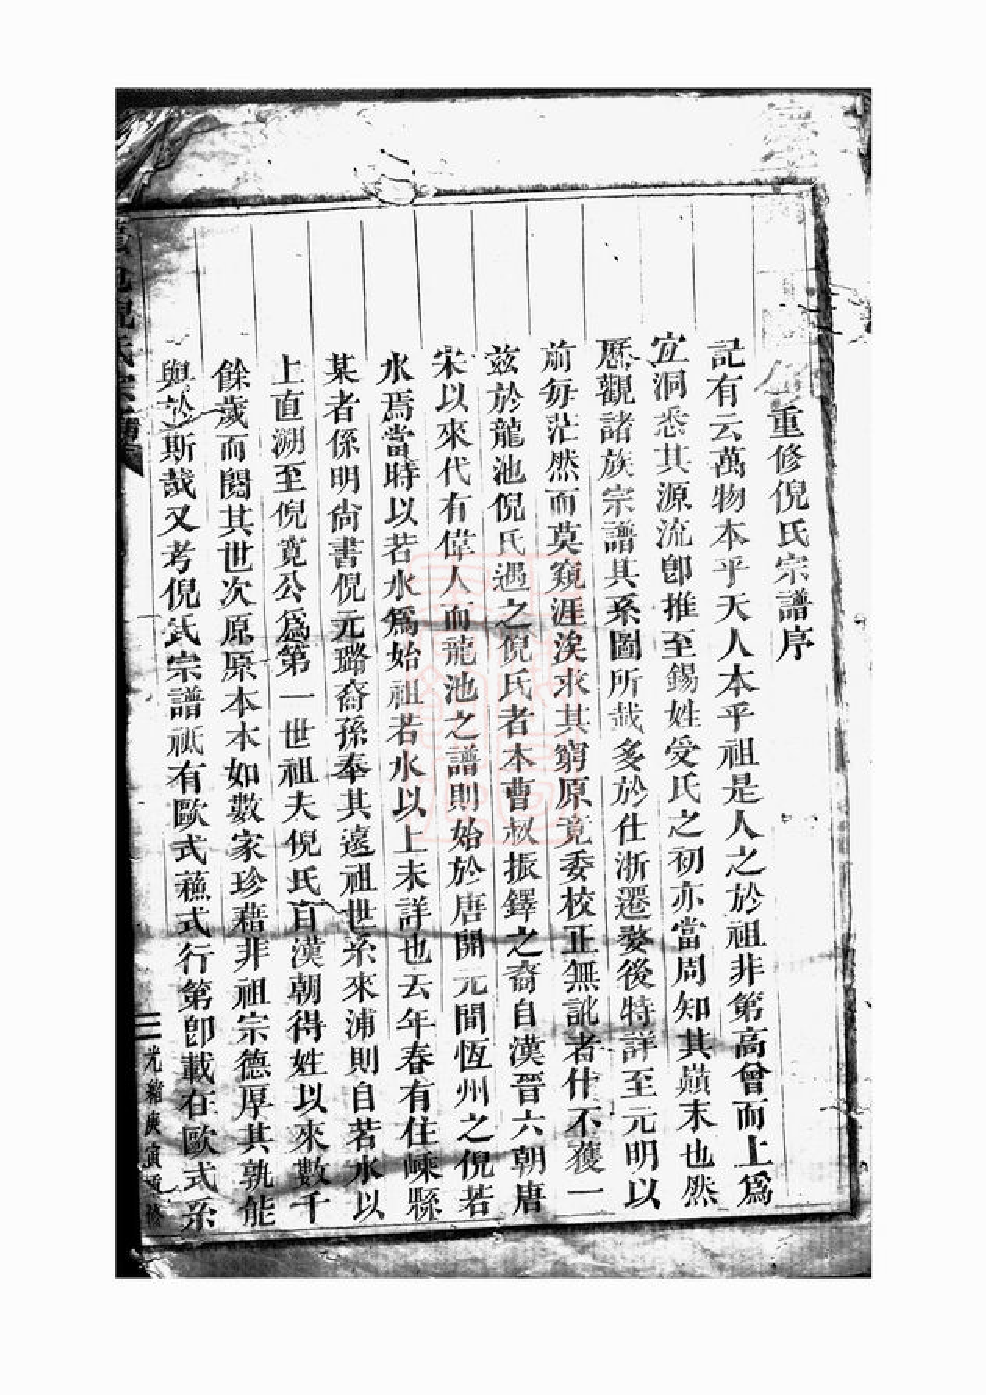 重修倪氏宗譜序
記有云萬物本乎天人本乎祖是人之於祖非第高曾而上爲
宜洞悉其源流卽推至錫姓受氏之初亦當周知其巔末也然
歷觀諸族宗譜其系圖所載多於仕浙遷婺後特詳至元明以
前每茫然而莫窺涯涘求其窮原竟委校正無訛者什不獲一
兹於龍池倪氏遇之倪氏者本曹叔振鐸之裔自漢晉六朝唐
宋以來代有偉人而龍池之譜則始於唐開元間恆州之倪若
水焉當時以若水爲始祖若水以上未詳也云年春有住嵊縣
某者係明尙書倪元璐裔孫奉其遠祖世系來浦則自若水以
上直溯至倪寬公爲第一世祖夫倪氏自漢朝得姓以來數千
餘歲而閱其世次原原本本如數家珍藉非祖宗德厚其孰能
與於斯哉又考倪氏宗譜祗有歐式蘇式行第卽載在歐式系
倪氏宗譜
光緒庚寅重修